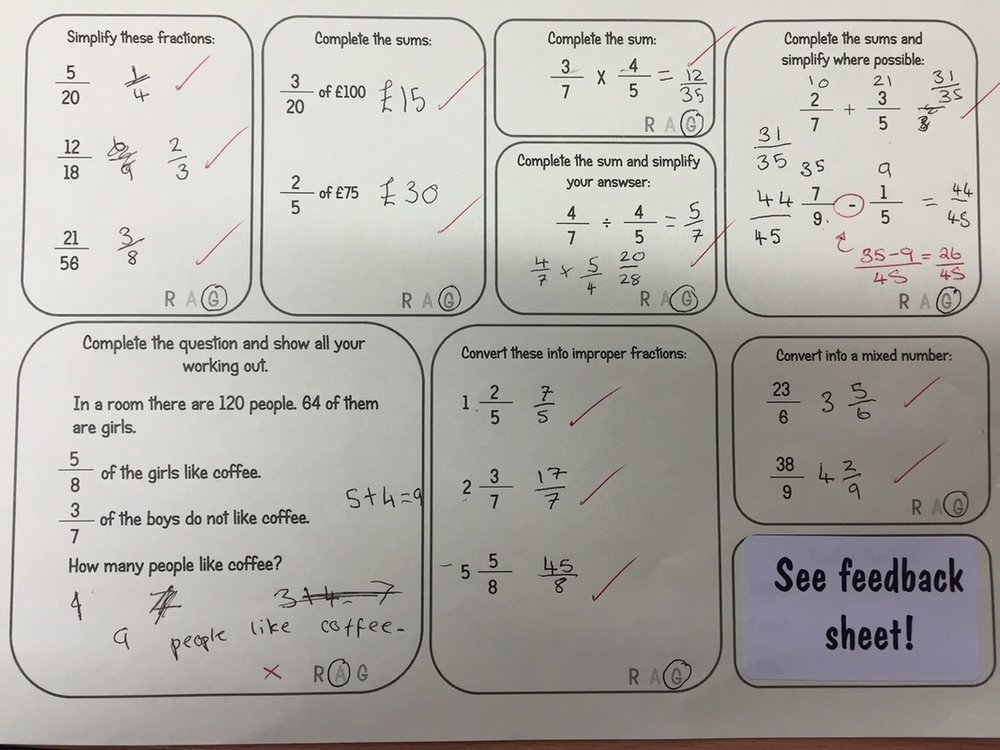 Simplify these fractions:
5/20 1/4
12/18 6/9 2/3
21/56 3/8
R A G
Complete the sums:
3/20 of £100 £15
2/5 of £75 £30
R A G
Complete the sum:
3/7 x 4/5 = 12/35
R A G
Complete the sum and simplify
your answser:
4/7 ÷ 4/5 = 5/7
4/7 x 5/4 20/28
R A G
Complete the sums and
simplify where possible:
10 21 31/35
2/7 + 3/5 =
31/35
35 9
44/45 7/9 - 1/5 = 44/45
35-9/45 = 26/45
R A G
Complete the question and show all your
working out.
In a room there are 120 people. 64 of them
are girls.
5/8 of the girls like coffee.
5+4=9
3/7 of the boys do not like coffee.
How many people like coffee?
3+4=7
9 people like coffee.
R A G
Convert these into improper fractions:
1 2/5 7/5
2 3/7 17/7
5 5/8 45/8
R A G
Convert into a mixed number:
23/6 3 5/6
38/9 4 2/9
R A G
See feedback
sheet!